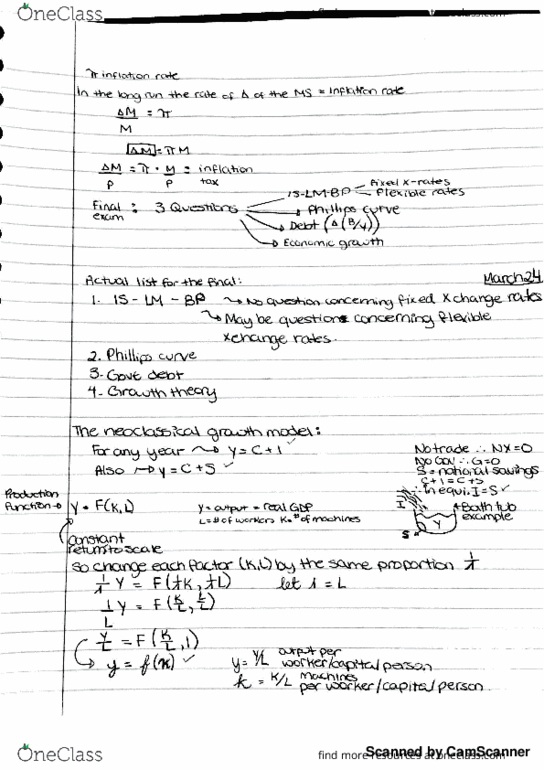 OneClass
find
oneclass.com
π inflation rate
In the long run the rate of Δ of the MS = Inflation rate
ΔM/M = π
ΔM = πM
ΔM/P = π · M/P = inflation tax
Final exam : 3 Questions
IS-LM-BP
Fixed X-rates
Flexible rates
Phillips curve
Debt (Δ(B/Y))
Economic growth
Actual list for the final:
March 24
1. IS - LM - BP ↝ No question concerning fixed Xchange rates
↝ May be questions concerning flexible
xchange rates.
2. Phillips curve
3. Govt debt
4. Growth theory
The neoclassical growth model:
For any year ↝ Y = C + I ✓
Also ↝ Y = C + S ✓
No trade ∴ NX = 0
No Gov ∴ G = 0
S = national savings
C + I = C + S
∴ In equi, I = S ✓
I
Y
S
Bath tub
example
Production
Function → Y = F(K, L)
Y = output = real GDP
L = # of workers K = # of machines
constant
return to scale
So change each factor (K, L) by the same proportion 1/λ
1/λ Y = F(1/λ K, 1/λ L) let λ = L
1/L Y = F(K/L, L/L)
Y/L = F(K/L, 1)
y = f(k) ✓
y = Y/L output per
worker/capital/person
k = K/L machines
per worker/capital/person
OneClass
find more resources at oneclass.com
Scanned by CamScanner